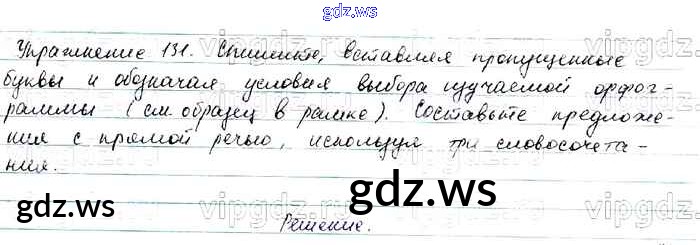 gdz.ws
Упражнение 131. Спишите, вставляя пропущенные
буквы и обозначая условия выбора изучаемой орфог-
раммы (см. образец в рамке). Составьте предложе-
ния с прямой речью, используя три словосочета-
ния.
gdz.ws gdz.ws
Решение.